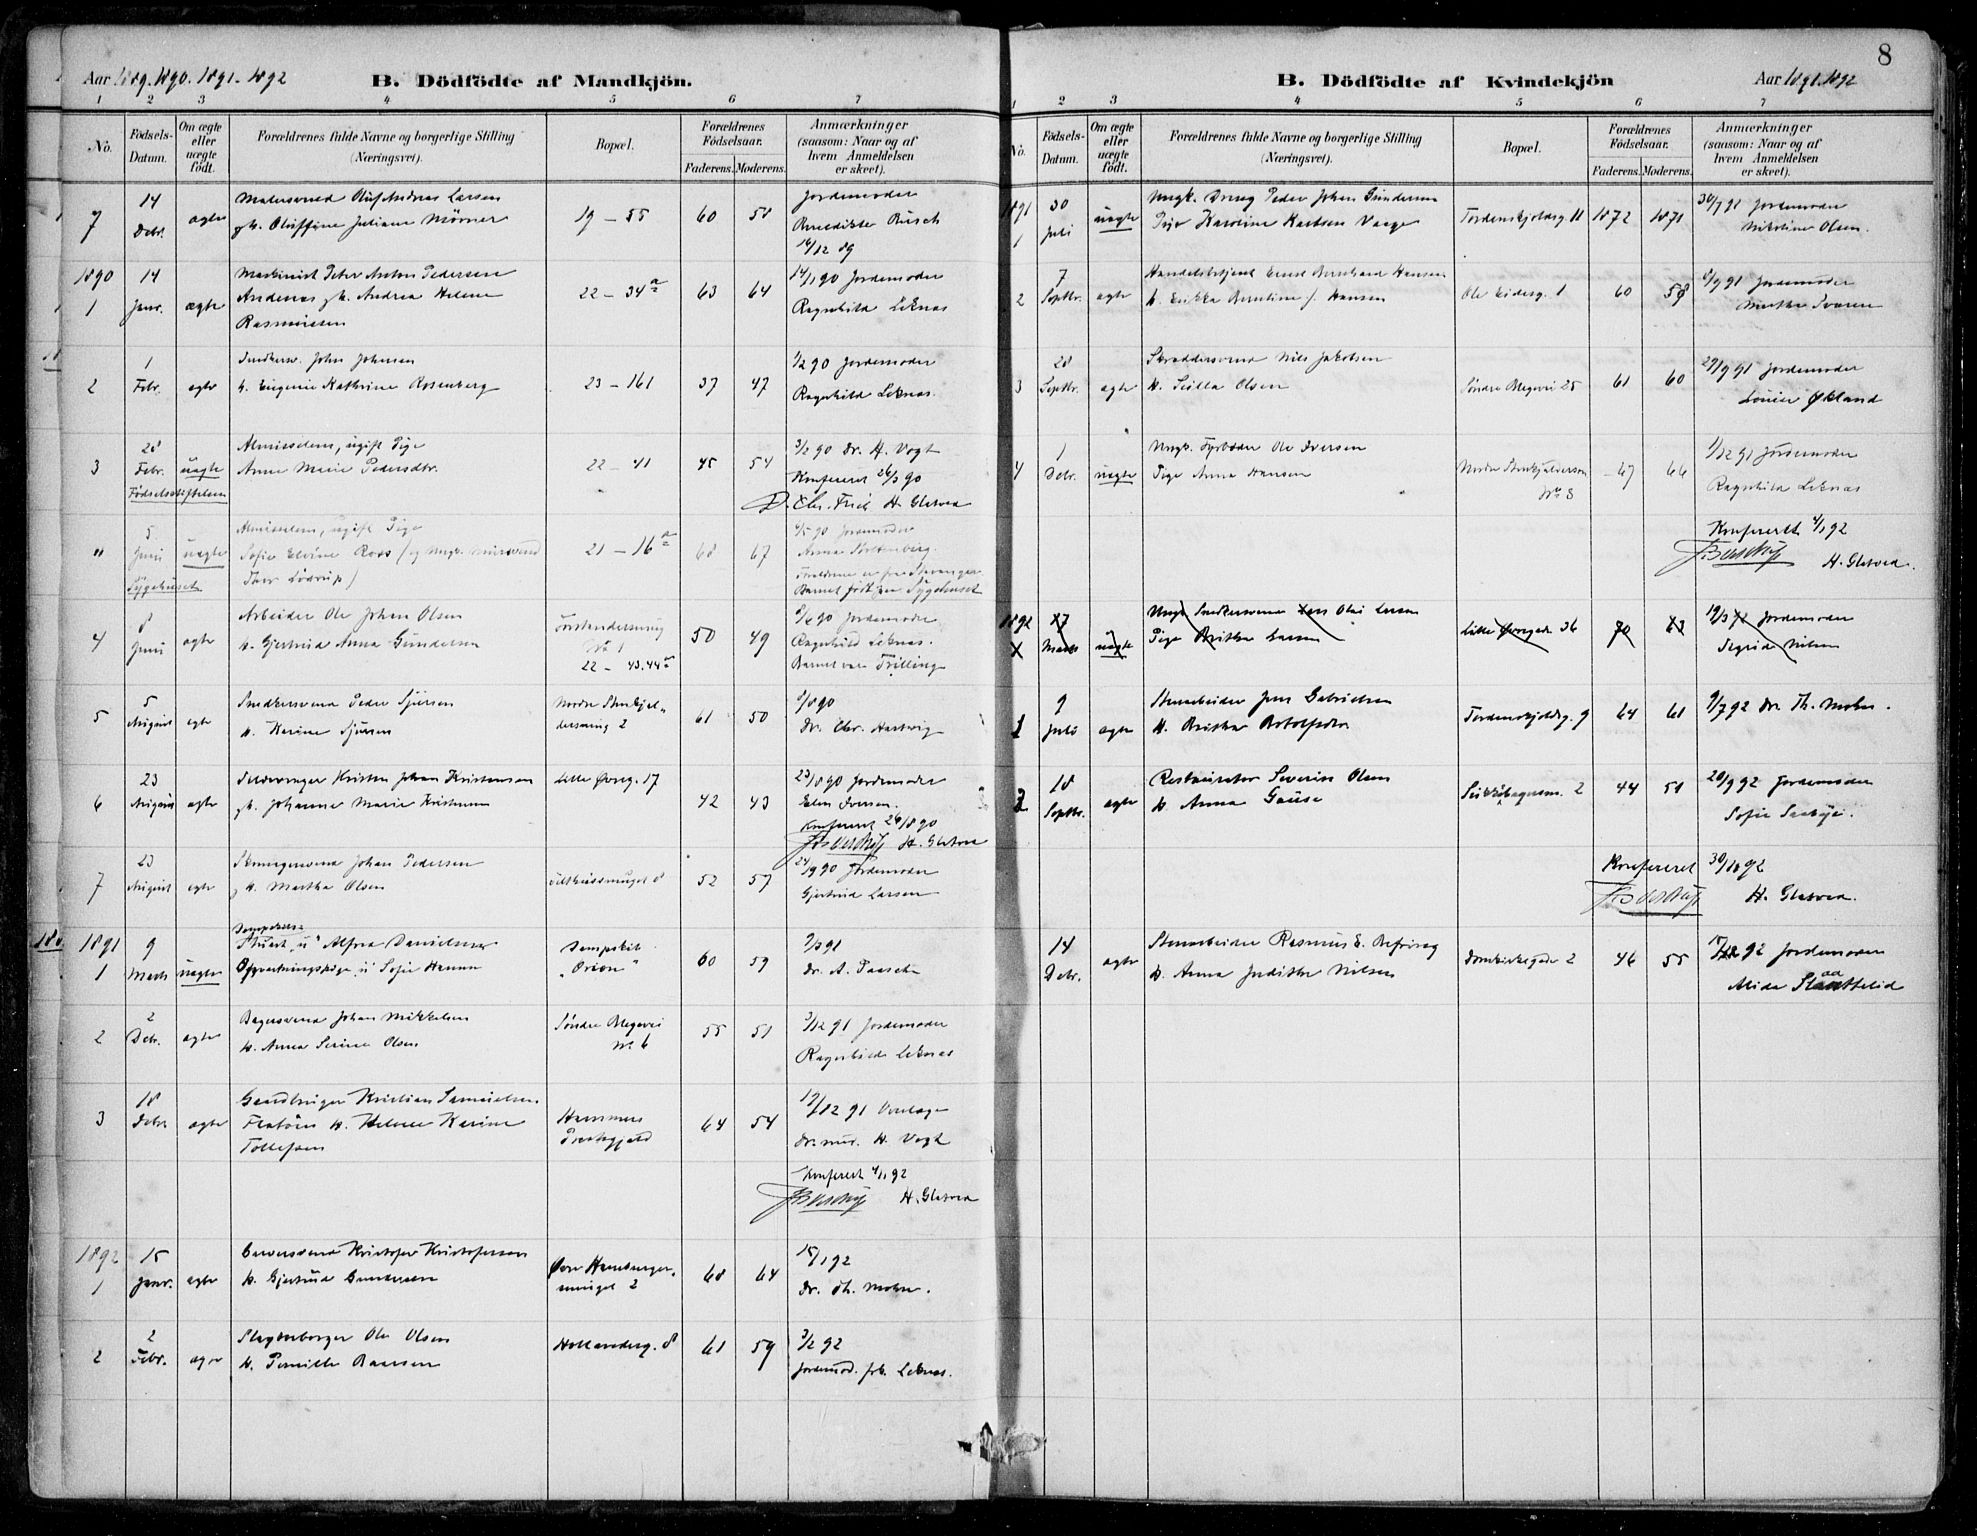 8
Aar 1889. 1890. 1891. 1892
B. Dödfödte af Mandkjön.
1 2 3 4 5 6 7
No.
Fødsels-Datum.
Om ægte eller uægte født.
Forældrenes fulde Navne og borgerlige Stilling
(Næringsvei).
Bopæl.
Forældrenes Fødselsaar.
Faderens. Moderens.
Anmærkninger
(saasom: Naar og af
hvem Anmeldelsen
er skeet).
7 14 Debr. ægte
Malersvend Olaf Andreas Larsen
Oliffine Juliane Mörner
19 – 55 60 58
Jordemoder
Benedikte Busch
16/12 89
1890
1 14 Janr. ægte
Maskinist Peter Anton Pedersen
Andenæs h. Andrea Helene
Rasmussen
22 – 34a 63 64
14/1 90 Jordemoder
Ragnhild Leknæs
2 1 Febr. ægte
Snedkersv. John Johnsen
h. Eugenie Kathrine Rosenberg
23 – 161 37 47
1/2 90 Jordemoder
Ragnhild Leknæs.
3 28 Febr. uægte
Fødselsstiftelsen
Almisselem, ugift Pige
Anne Marie Pedersdtr.
22 – 41 45 54
3/2 90 Dr. H. Vogt
Konfereret 26/3 90
H. Gletved
" 5 Juni uægte
Sygehuset
Almisselem, ugift Pige
Sofie Elvine Roos
21 – 16a 68 67
6/5 90 Jordemoder
Anna
Forældrene er fra Stavanger
Barnet født paa Sygehuset
4 8 Juni ægte
Arbeider Ole Johan Olsen
h. Gjertrud Anna Gundersen
Forstanderswing
No 1
22 – 43.44a
50 49
9/6 90 Jordemoder
Ragnhild Leknæs.
Barnet var Trilling
5 5 August ægte
Snedkersvend Peder Sjursen
h. Karine Sjursen
Nordre
2
61 50
6/8 90
Dr. Chr. Hartvig
6 23 August ægte
Kristen Johan Kristensen
h. Johanne Marie Kristensen
Lille Øvreg. 17
42 43
23/8 90 Jordemoder
Elen Iversen.
Konfereret 26/8 90
H. Gletved
7 23 August ægte
Skomagersvend Johan Pedersen
h. Martha Olsen
8 52 57
24/9 90 Jordemoder
Gjertrud Larsen
1891
1 9 Marts uægte
Dampskibs-
Stuert "u" Alfred Danielsen
Opvartningspige "u" Sofie Hansen
Dampskib
"Orion"
60 59
9/3 91
Dr. A. Paasche
2 2 Debr. ægte
Bagersvend Johan Mikkelsen
h. Anna Serine Olsen
Søndre Blegevei
No 6
55 51
3/12 91 Jordemoder
Ragnhild Leknæs
3 18 Debr. ægte
Gaardbruger Kristian Samuelsen
Flatöen h. Helene Karine
Tollefsen
Hammers
Prestegjeld
64 54
19/12 91
Dr. med. H. Vogt
Konfereret 4/1 92
H. Gletved
1892
1 15 Janr. ægte
Garversvend Kristofer Kristofersen
h. Gjertrud Gundersen
Øvre Hamburger-
smuget 2
68 64
15/1 92
Dr. Th. Mohn.
2 2 Febr. ægte
Slagterborger Ole Olsen
h. Pernille Baarsen
Hollenderg. 8 61 59
3/2 92
Jordemod. frk. Leknæs.
B. Dödfödte af Kvindekjön
Aar 1891. 1892
1 2 3 4 5 6 7
No.
Fødsels-Datum.
Om ægte eller uægte født.
Forældrenes fulde Navne og borgerlige Stilling
(Næringsvei).
Bopæl.
Forældrenes Fødselsaar.
Faderens. Moderens.
Anmærkninger
(saasom: Naar og af
hvem Anmeldelsen
er skeet).
1891
1 30 Juli uægte
Ungk. Dreng Peder Johan Gundersen
Pige Karoline Knutsen Vaage
Tordenskjoldsg. 11 1872 1871
30/7 91 Jordemoder
Nikoline Olsen.
2 7 Septbr. ægte
Handelsbetjent Ernst Bernhard Hansen
h. Erikka Berntine f. Hansen
Ole Eidesg. 1 60 58
8/9 91 Jordemoder
Martha Svaren
3 28 Septbr. ægte
Skræddersvend Nils Jakobsen
h. Silla Olsen
Søndre Blegevei 25 61 60
29/9 91 Jordemoder
Louise Økland
4 1 Debr. uægte
Ungk. Fyrbøder Ole Iversen
Pige Anna Hansen
Nordre
No 8
67 66
1/12 91 Jordemoder
Ragnhild Leknæs
Konfereret 4/1 92
H. Gletved.
1892
Marts uægte
Ungk Snedkersvend Lars Olai Larsen
Pige Britha Larsen
Lille Øvregade 36 70 63
19/3 92 Jordemoder
Sigrid Nilsen
1 9 Juli ægte
Stenarbeider Jens Gabrielsen
h. Britha Botolfsdtr
Tordenskjoldsg. 9 64 61
9/7 92 Dr. Th. Mohn.
2 18 Septbr. ægte
Restauratør Severin Olsen
h. Anna Gause
2 44 51
20/9 92 Jordemoder
Sofie Seebye.
Konfereret 30/10 92
H. Gletved.
14 Debr. ægte
Stenarbeider Rasmus E. Befring
h. Anna Judithe Nilsen
Domkirkegade 2 46 55
15/12 92 Jordemoder
Alida